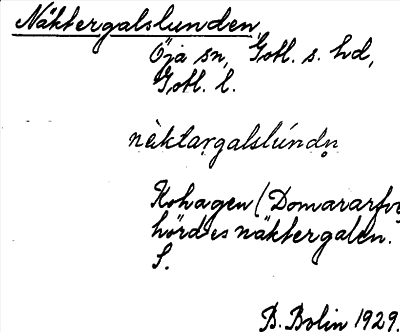 Näktergalslunden
Öja sn, Gotl. s. hd,
Gotl. l.
nèktargalslúndn̥
Kohagen (Domararfve
hördes näktergalen.
S.
B. Bolin 1929.